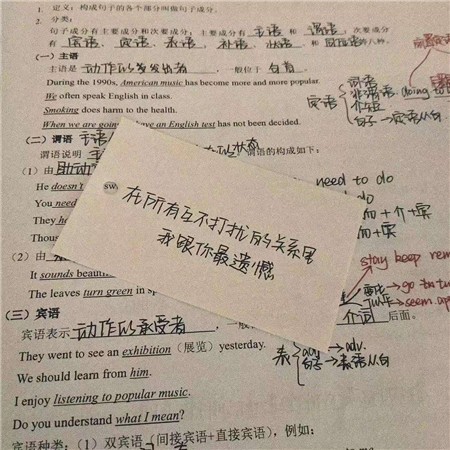 1. 定义：构成句子的各个部分叫做句子成分。
2. 分类：
句子成分有主要成分和次要成分；主要成分有 主语 和 谓语，次要成分
有 宾语、定语、表语、补语、状语 和 同位语的八种。
（一）主语
主语是 动作的发出者 ，一般位于 句首 。
During the 1990s, American music has become more and more popular.
We often speak English in class.
Smoking does harm to the health.
When we are going have an English test has not been decided.
宾语
词语
非谓语 doing to
介压
句子→宾语从句
（二）谓语 主语
谓语说明 主 状态 谓语的构成如下：
（1）由 助动
He doesn't need to do
You need do
They h 而+介+宾
Thous 而+宾
（2）由
It sounds beauti stay keep rem
The leaves turn green in sp go tu tur
seem. ap
SW
在所有互不打扰的关系里
我跟你最遗憾
（三）宾语
宾语表示 动作的承受者 ，一般 介词 后面。
They went to see an exhibition（展览）yesterday.
表 adj → adv.
句子→表语从句
We should learn from him.
I enjoy listening to popular music.
Do you understand what I mean?
宾语种类：（1）双宾语（间接宾语+直接宾语），例如：